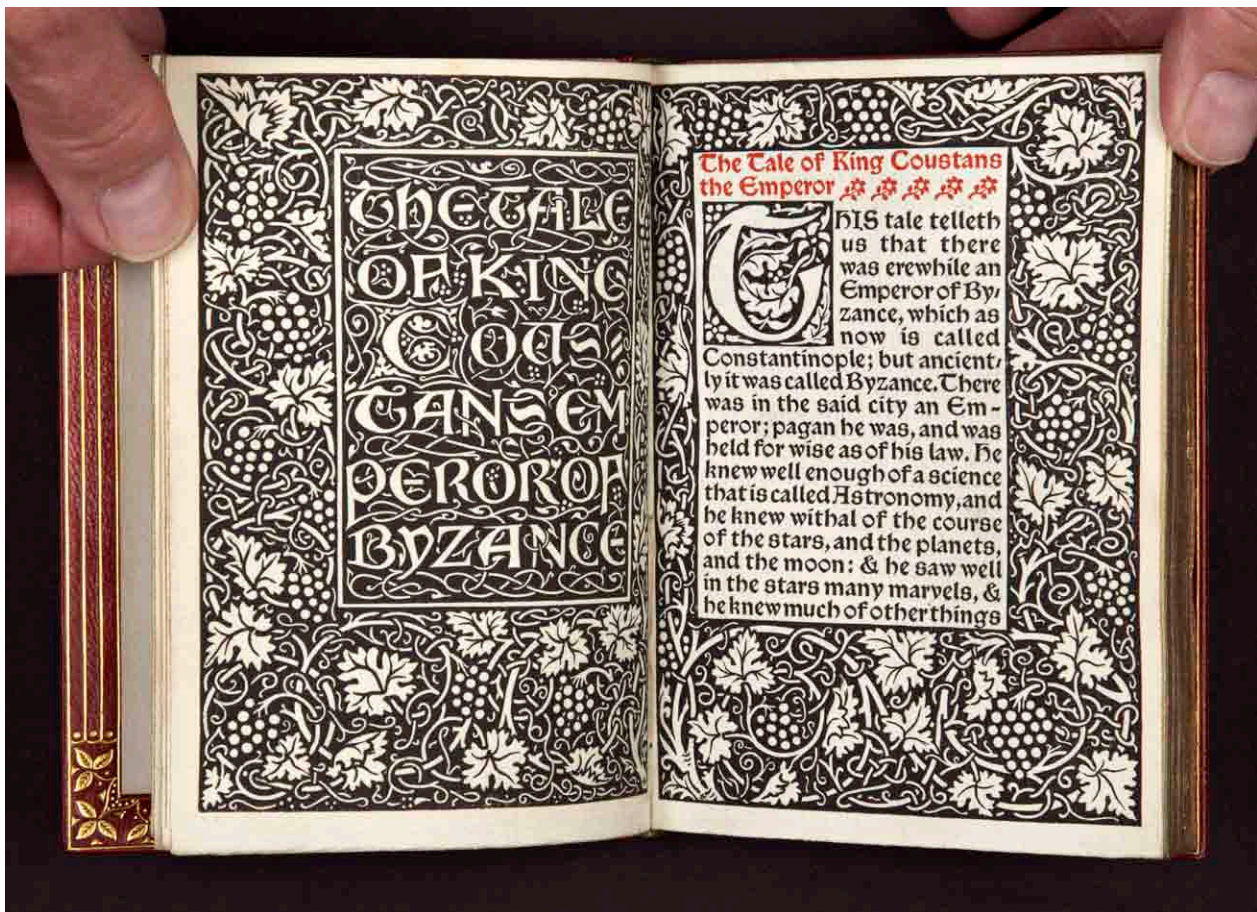 THE TALE
OF KING
COUS-
TANS EM
PEROR OF
BYZANCE
The Tale of King Coustans
the Emperor
THIS tale telleth
us that there
was erewhile an
Emperor of By-
zance, which as
now is called
Constantinople; but ancient-
ly it was called Byzance. There
was in the said city an Em-
peror; pagan he was, and was
held for wise as of his law. He
knew well enough of a science
that is called Astronomy, and
he knew withal of the course
of the stars, and the planets,
and the moon: & he saw well
in the stars many marvels, &
he knew much of other things